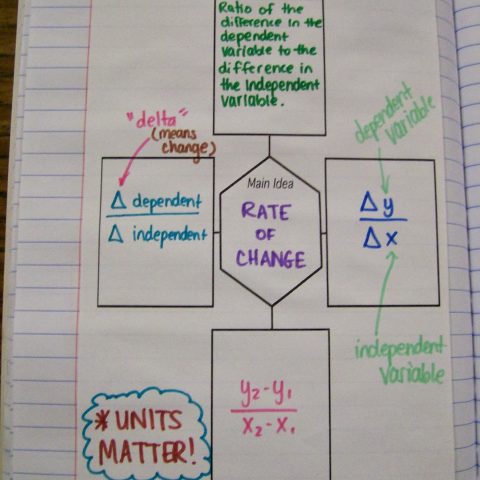 Ratio of the
difference in the
dependent
variable to the
difference in
the independent
variable.
"delta"
(means
change)
dependent
variable
Δ dependent
Δ independent
Main Idea
RATE
OF
CHANGE
Δy
Δx
independent
variable
y₂-y₁
x₂-x₁
*UNITS
MATTER!